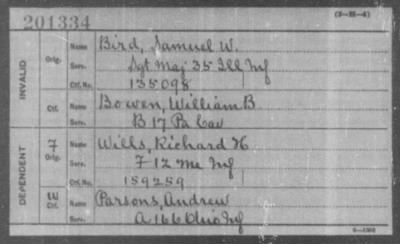 201334
(3-25-4)
INVALID
Orig. Name Bird, Samuel W.
Serv. Sgt Maj 35 Ill Inf
Ctf. No. 135098
Ctf. Name Bowen, William B.
Serv. B 17 Pa Cav
DEPENDENT
7 Orig. Name Wills, Richard H
Serv. F 12 Me Inf
Ctf. No. 159259
W Ctf. Name Parsons, Andrew
Serv. A 166 Ohio Inf